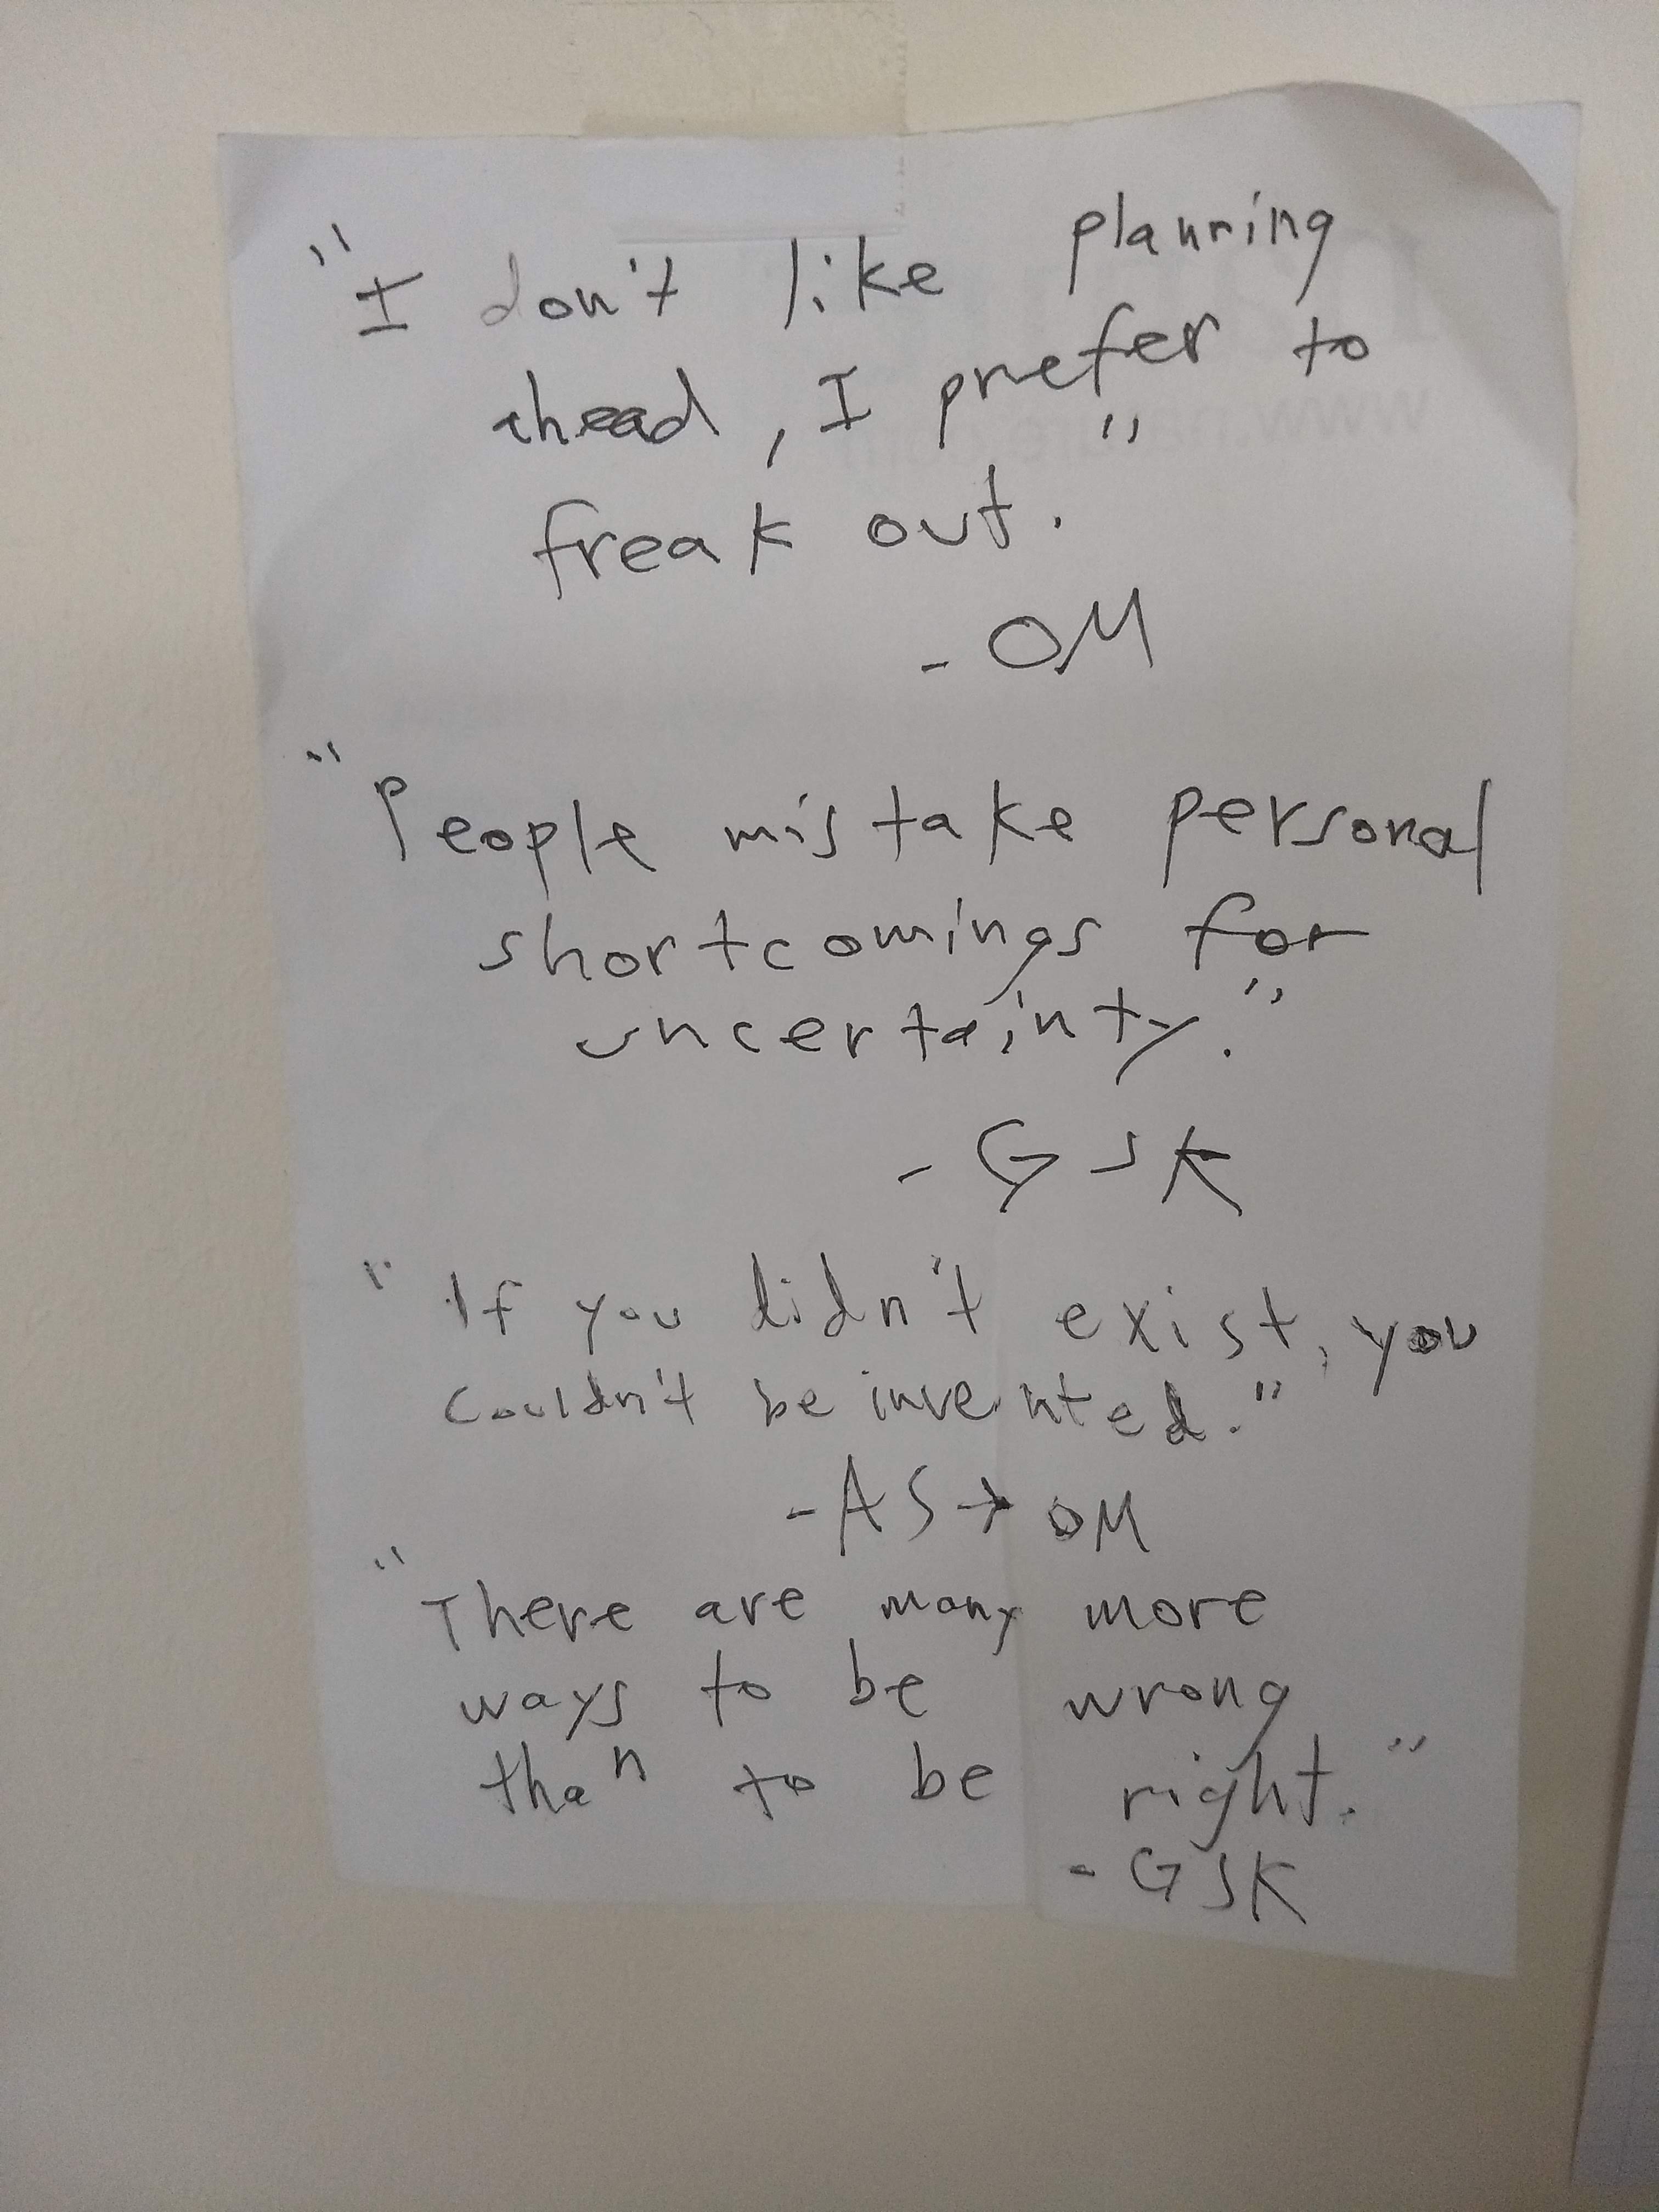 "I don't like planning
ahead, I prefer to
freak out."
- OM
"People mistake personal
shortcomings for
uncertainty."
- GSK
"If you didn't exist, you
couldn't be invented."
- AS → OM
"There are many more
ways to be wrong
than to be right."
- GSK